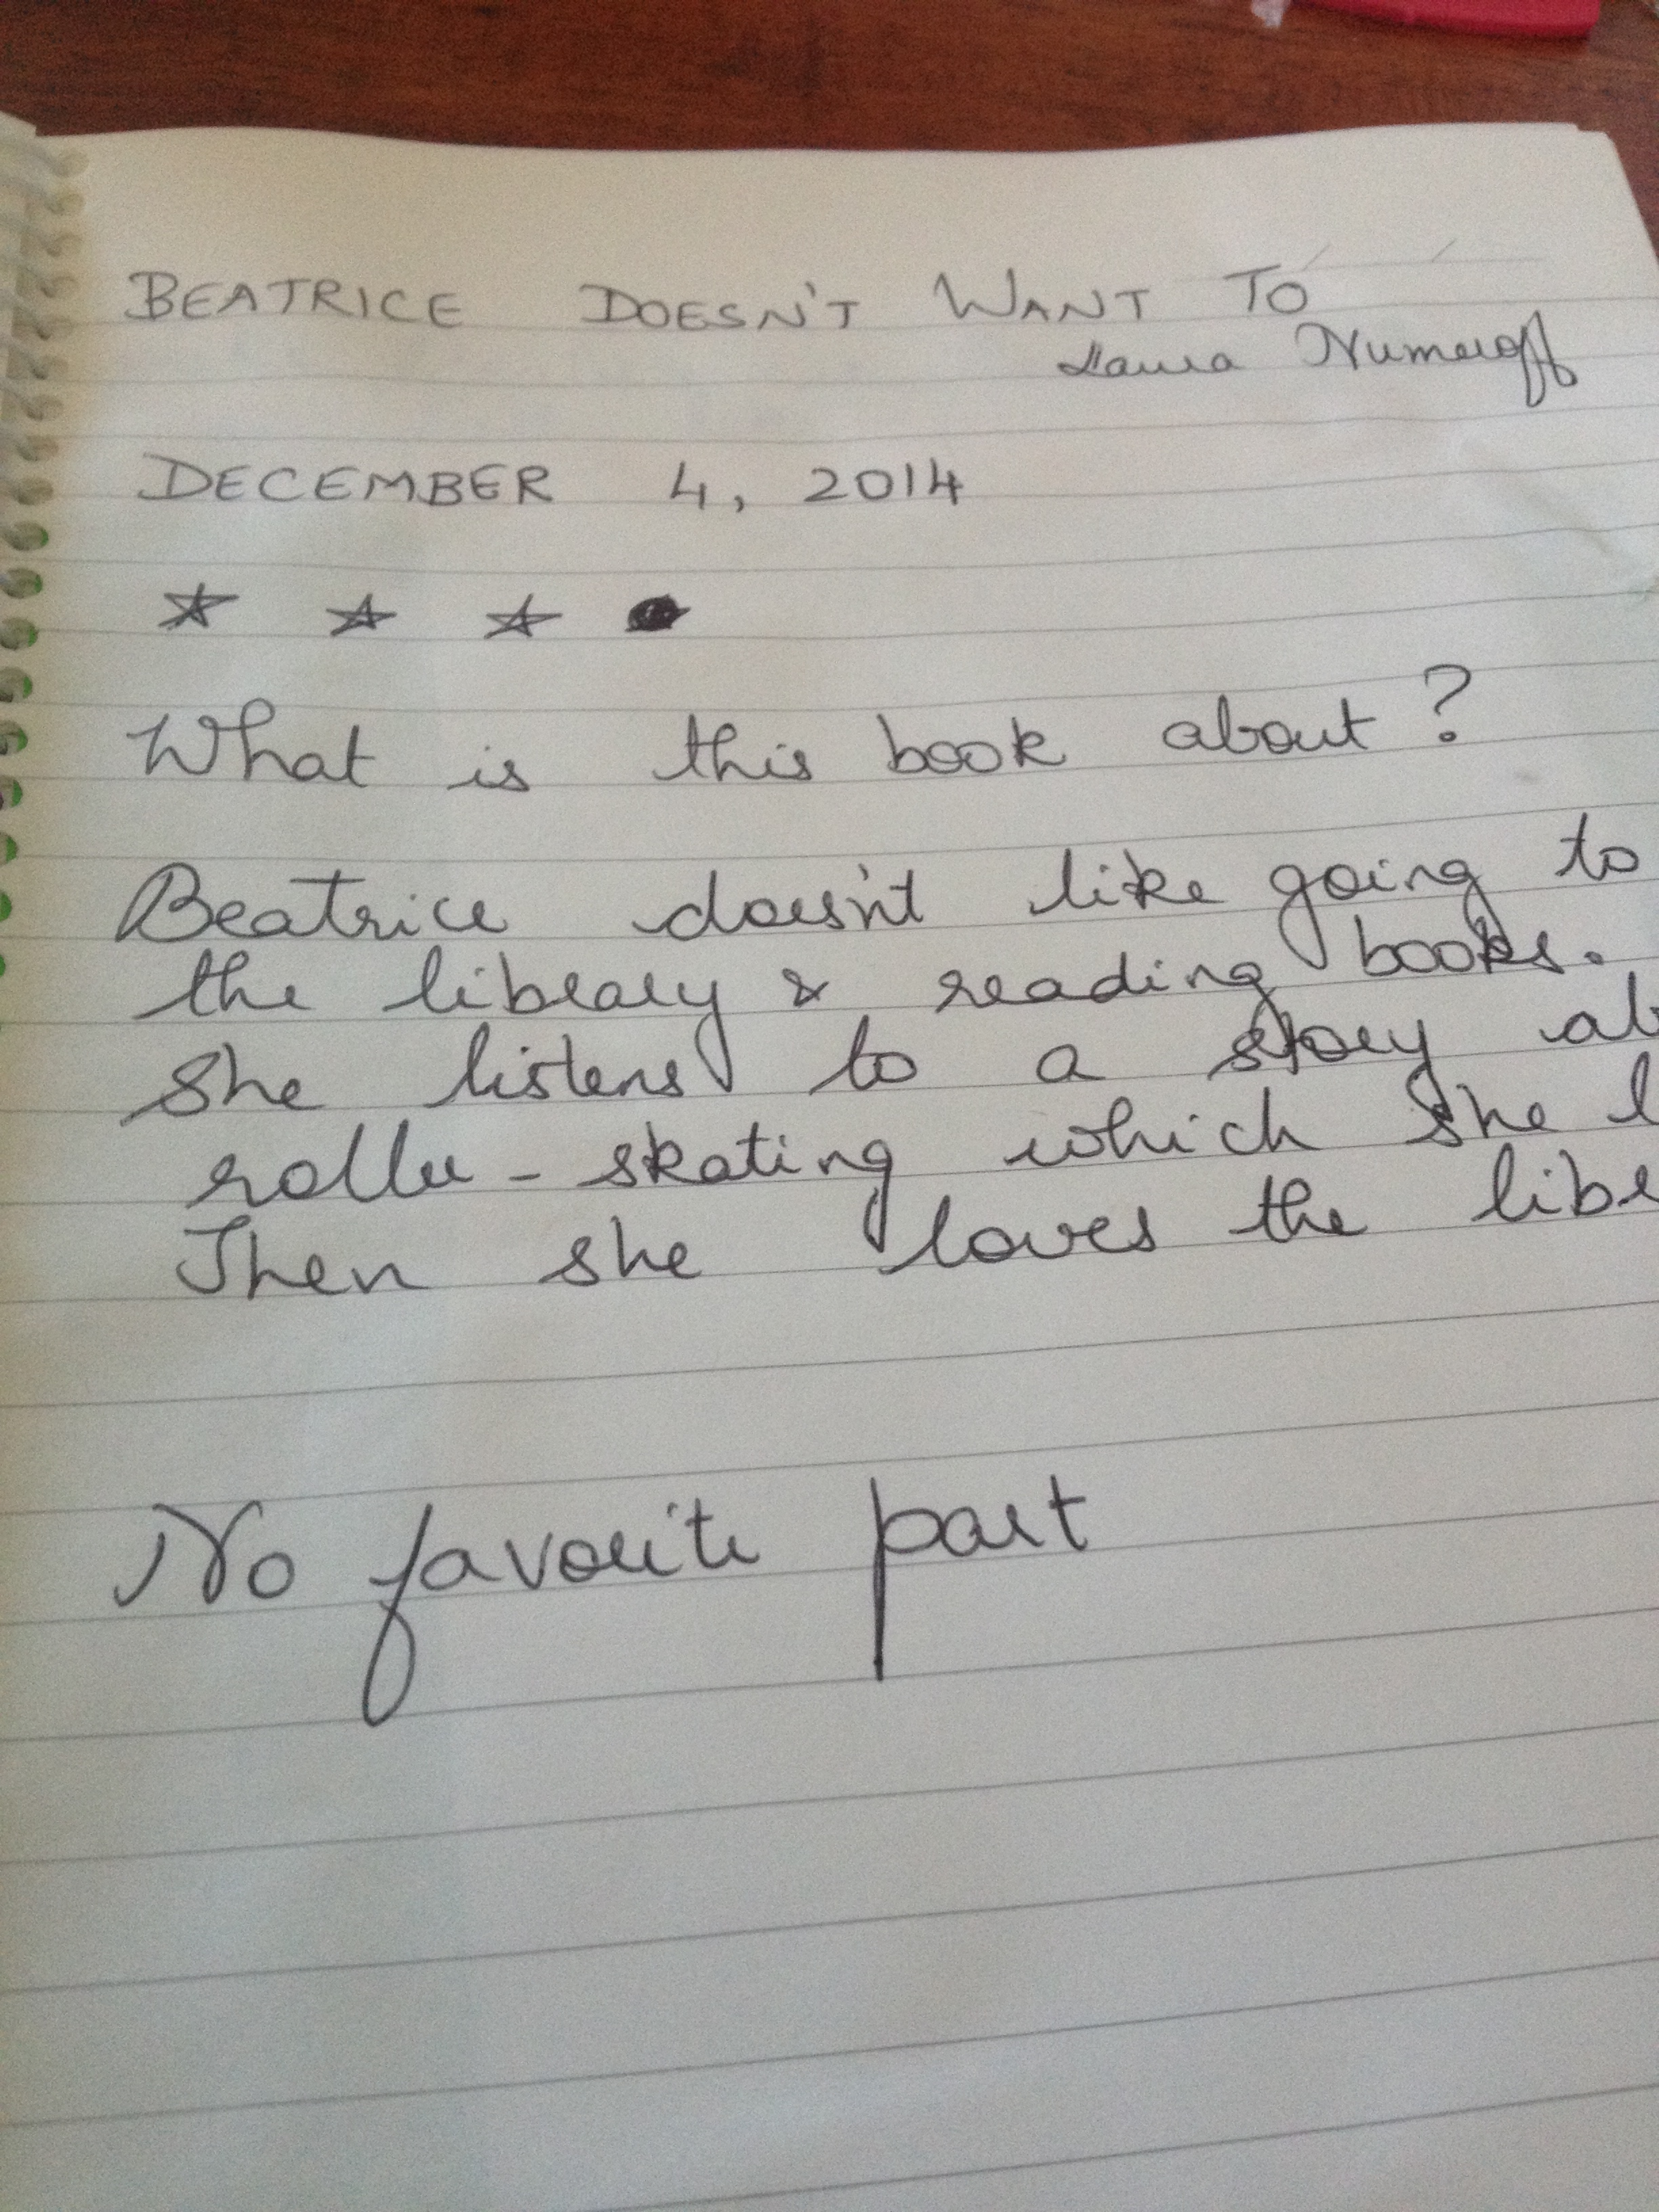 BEATRICE DOESN'T WANT TO
Laura Numeroff
DECEMBER 4, 2014
What is this book about?
Beatrice doesn't like going to
the library & reading books.
She listens to a story ab
roller-skating which she l
Then she loves the libr
No favorite part